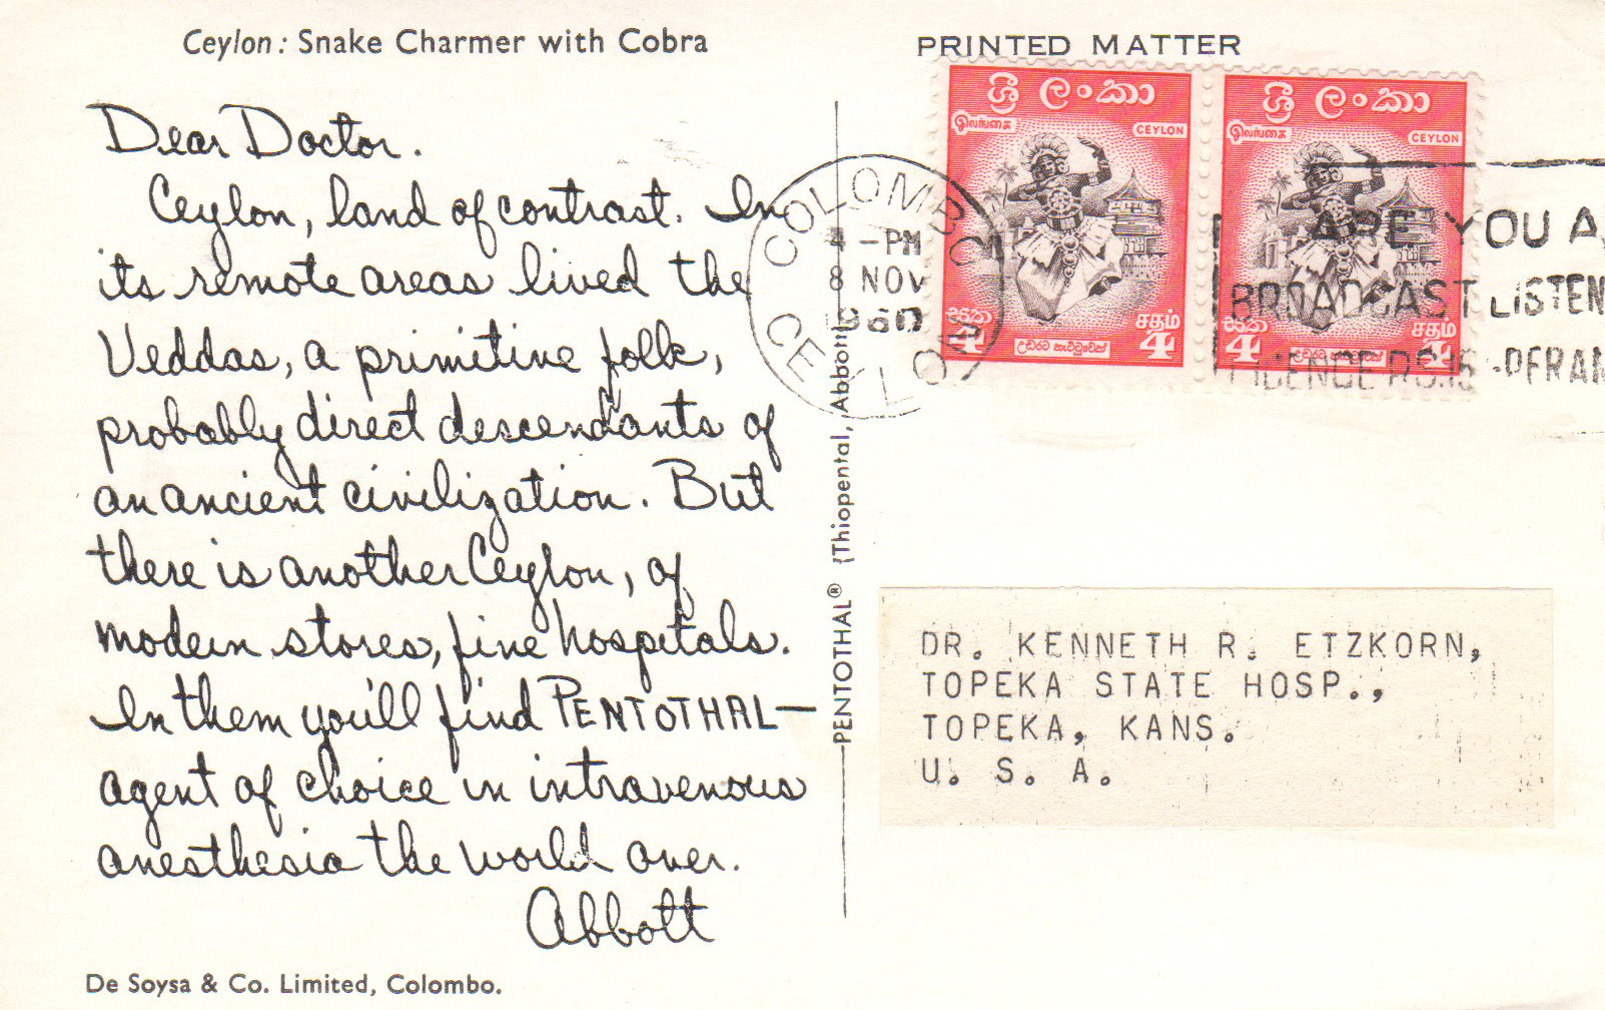 Ceylon: Snake Charmer with Cobra
Dear Doctor.
Ceylon, land of contrast. In
its remote areas lived the
Veddas, a primitive folk,
probably direct descendants of
an ancient civilization. But
there is another Ceylon, of
modern stores, fine hospitals.
In them you'll find PENTOTHAL—
agent of choice in intravenous
anesthesia the world over.
Abbott
De Soysa & Co. Limited, Colombo.
PENTOTHAL® (Thiopental, Abbott)
PRINTED MATTER
ශ්‍රී ලංකා
இலங்கை
CEYLON
සත
4
சதம்
4
උඩරට නැට්ටුවෙක්
ශ්‍රී ලංකා
இலங்கை
CEYLON
සත
4
சதம்
4
COLOMBO
4 -PM
8 NOV
1960
CEYLON
ARE YOU A
BROADCAST LISTEN
LICENCE RS.15
DR. KENNETH R. ETZKORN,
TOPEKA STATE HOSP.,
TOPEKA, KANS.
U. S. A.